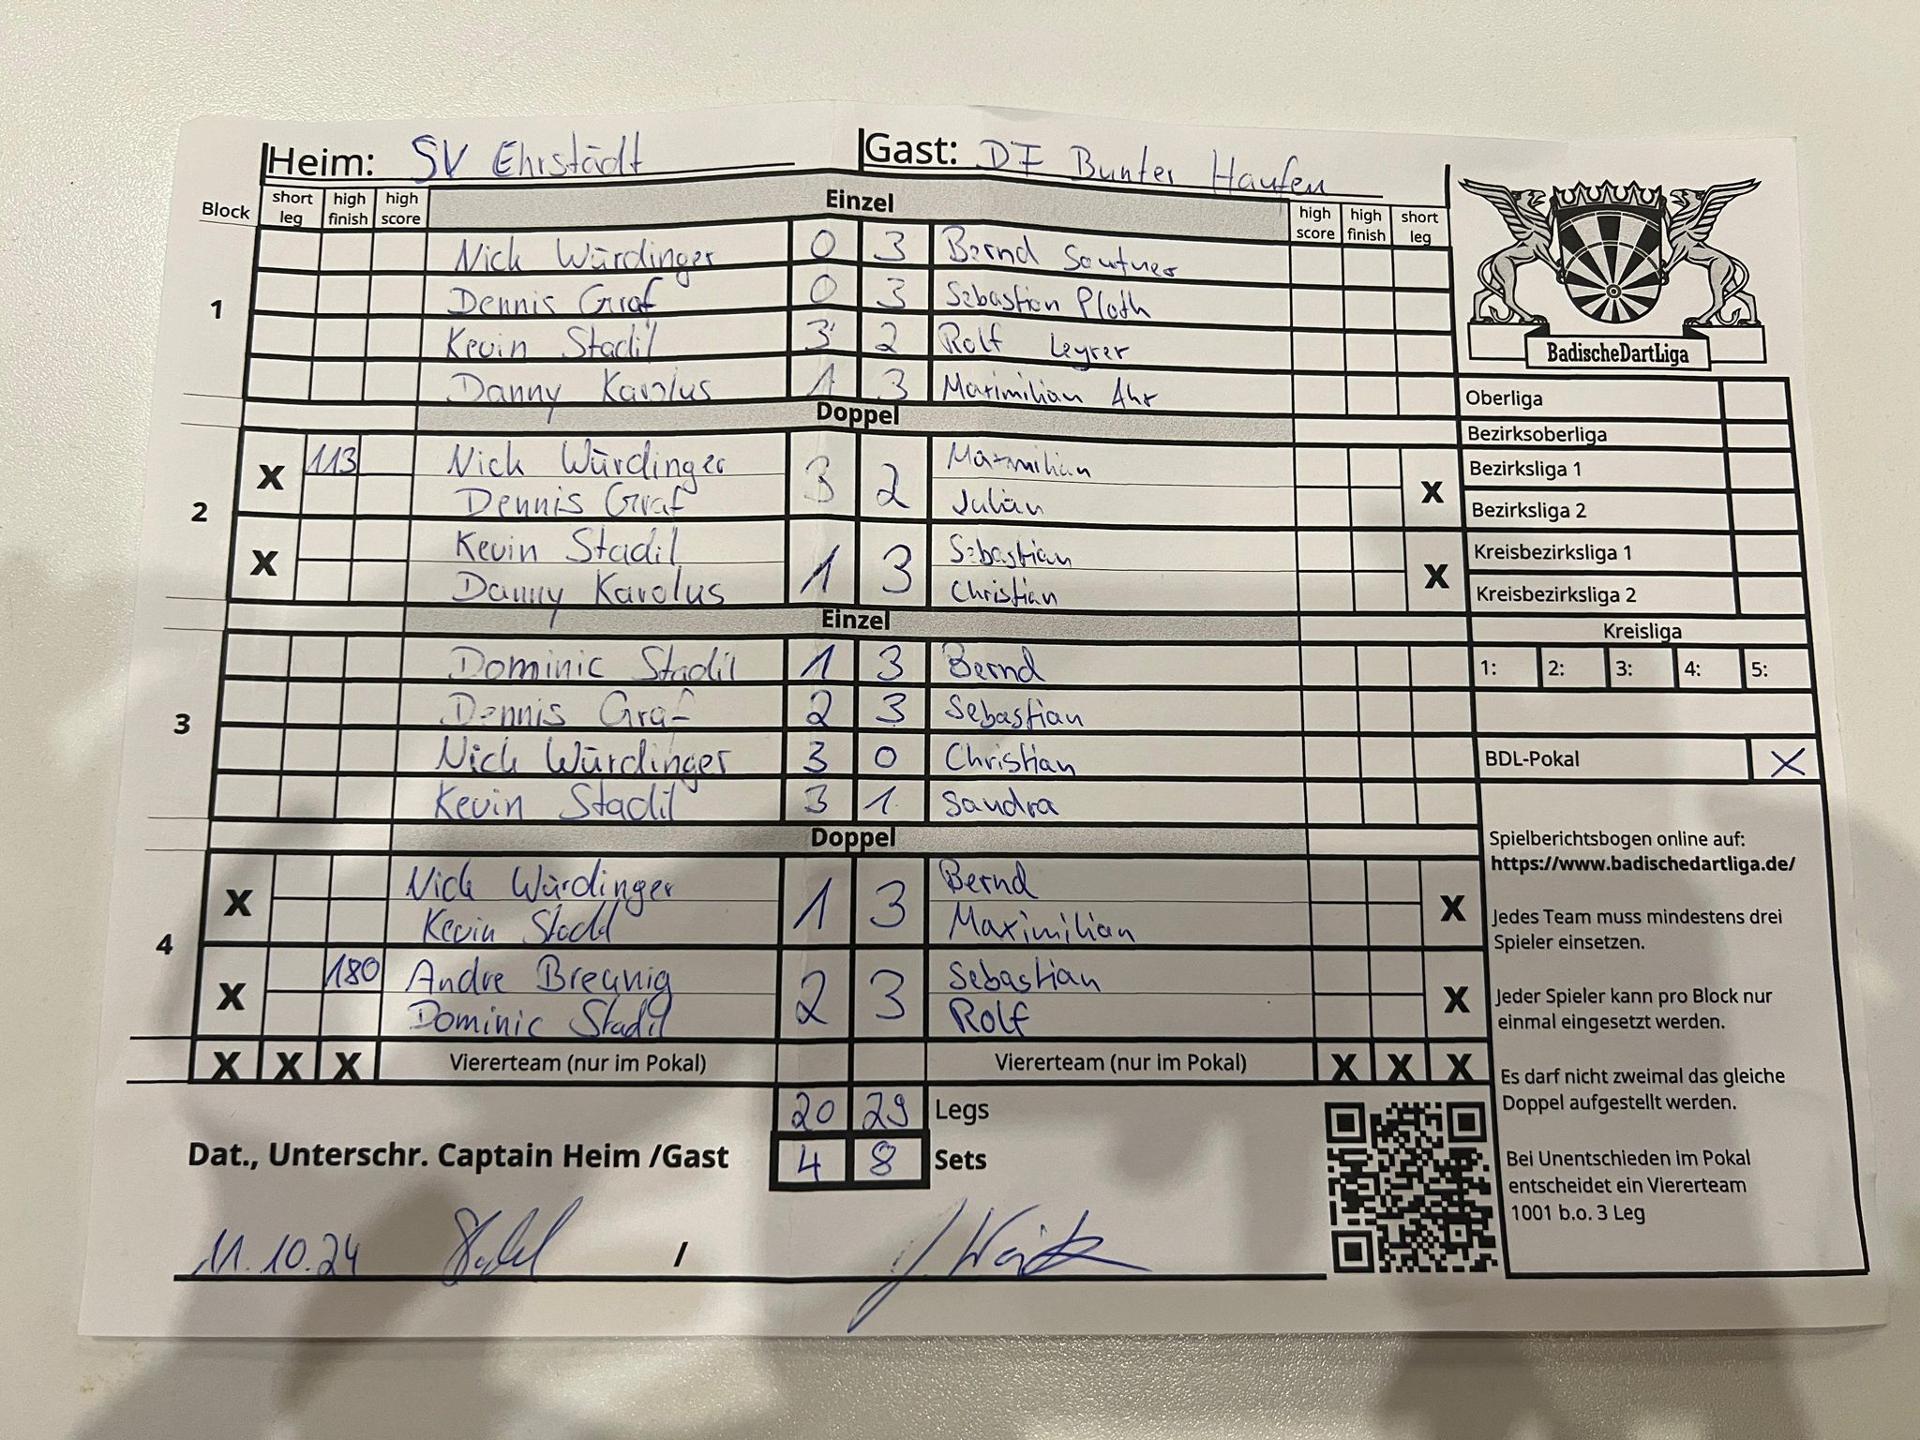 Heim: SV Ehrstädt Gast: DF Bunter Haufen
Block short leg high finish high score Einzel high score high finish short leg
1
Nick Würdinger 0 3 Bernd Sautner
Dennis Graf 0 3 Sebastian Ploth
Kevin Stadil 3 2 Rolf Leyrer
Danny Karolus 1 3 Maximilian Ahr
BadischeDartLiga
Doppel
2
X 113 Nick Würdinger 3 2 Maximilian X
Dennis Graf Julian
X Kevin Stadil 1 3 Sebastian X
Danny Karolus Christian
Einzel
3
Dominic Stadil 1 3 Bernd
Dennis Graf 2 3 Sebastian
Nick Würdinger 3 0 Christian
Kevin Stadil 3 1 Sandra
Doppel
4
X Nick Würdinger 1 3 Bernd X
Kevin Stadil Maximilian
X 180 Andre Breunig 2 3 Sebastian X
Dominic Stadil Rolf
X X X Viererteam (nur im Pokal) Viererteam (nur im Pokal) X X X
20 29 Legs
4 8 Sets
Dat., Unterschr. Captain Heim /Gast
11.10.24 /
Oberliga
Bezirksoberliga
Bezirksliga 1
Bezirksliga 2
Kreisbezirksliga 1
Kreisbezirksliga 2
Kreisliga
1: 2: 3: 4: 5:
BDL-Pokal X
Spielberichtsbogen online auf:
https://www.badischedartliga.de/
Jedes Team muss mindestens drei
Spieler einsetzen.
Jeder Spieler kann pro Block nur
einmal eingesetzt werden.
Es darf nicht zweimal das gleiche
Doppel aufgestellt werden.
Bei Unentschieden im Pokal
entscheidet ein Viererteam
1001 b.o. 3 Leg